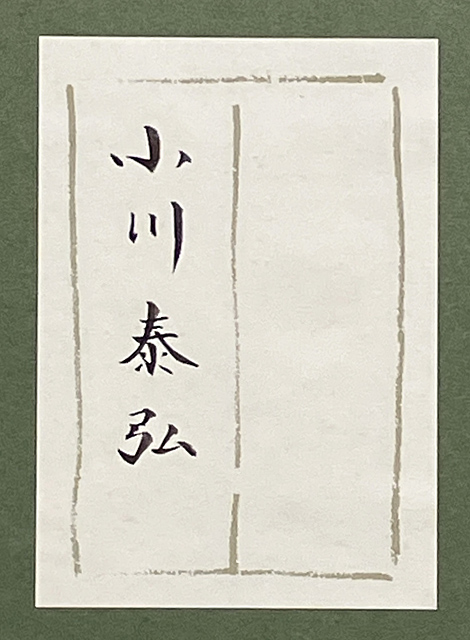 小川泰弘